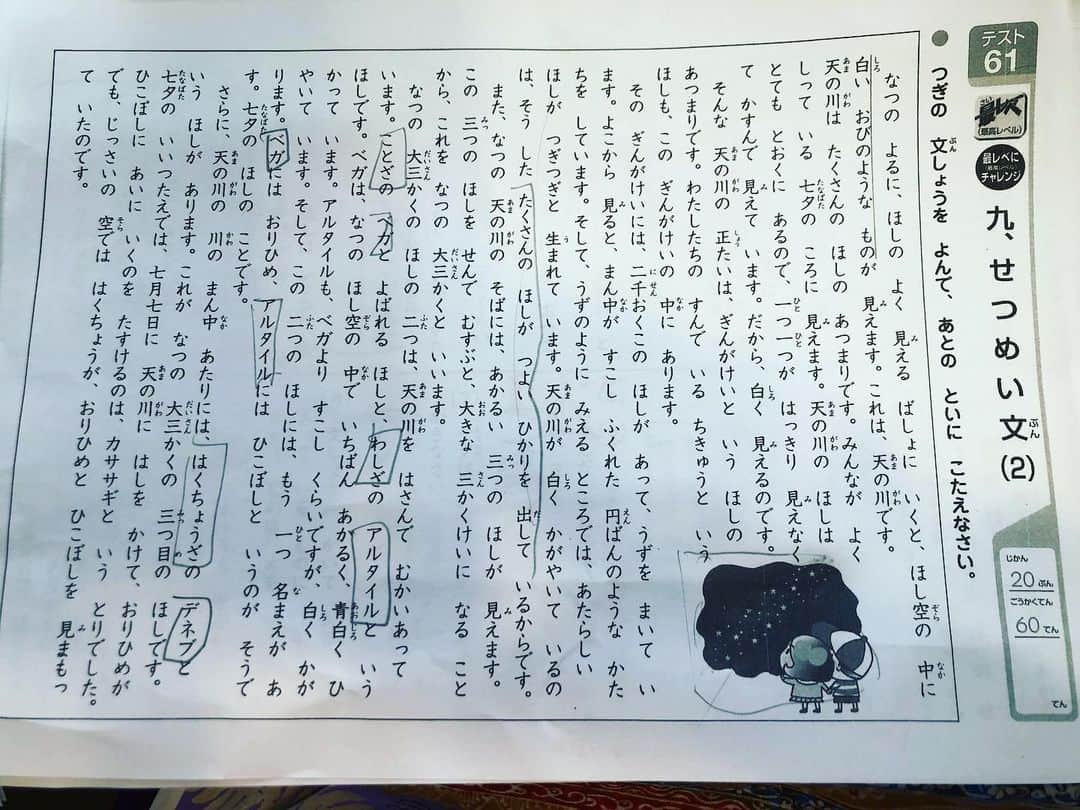 テスト
61
最レベ
(最高レベル)
最レベに
(最高レベル)
チャレンジ
九、せつめい文(2)
じかん
20ぷん
ごうかくてん
60てん
てん
● つぎの 文しょうを よんで、あとの といに こたえなさい。
なつの よるに、ほしの よく 見える ばしょに いくと、ほし空の 中に
白い おびのような ものが 見えます。これは、天の川です。
天の川は たくさんの ほしの あつまりです。みんなが よく
しって いる 七夕の ころに 見えます。天の川の ほしは
とても とおくに あるので、一つ一つが はっきり 見えなく
て かすんで 見えて います。だから、白く 見えるのです。
そんな 天の川の 正たいは、ぎんがけいと いう ほしの
あつまりです。わたしたちの すんで いる ちきゅうと いう
ほしも、この ぎんがけいの 中に あります。
その ぎんがけいには、二千おくこの ほしが あって、うずを まいて い
ます。よこから 見ると、まん中が すこし ふくれた 円ばんのような かた
ちを しています。そして、うずのように みえる ところでは、あたらしい
ほしが つぎつぎと 生まれて います。天の川が 白く かがやいて いるの
は、そう した たくさんの ほしが つよい ひかりを 出して いるからです。
また、なつの 天の川の そばには、あかるい 三つの ほしが 見えます。
この 三つの ほしを せんで むすぶと、大きな 三かくけいに なる こと
から、これを なつの 大三かくと いいます。
なつの 大三かくの ほしの 二つは、天の川を はさんで むかいあって
います。ことざの ベガと よばれる ほしと、わしざの アルタイルと いう
ほしです。ベガは、なつの ほし空の 中で いちばん あかるく、青白く ひ
かって います。アルタイルも、ベガより すこし くらいですが、白く かが
やいて います。そして、この 二つの ほしには、もう 一つ 名まえが あ
ります。ベガには おりひめ、アルタイルには ひこぼしと いうのが そうで
す。七夕の ほしの ことです。
さらに、天の川の 川の まん中 あたりには、はくちょうざの デネブと
いう ほしが あります。これが なつの 大三かくの 三つ目の ほしです。
七夕の いいつたえでは、七月七日に 天の川に はしを かけて、おりひめが
ひこぼしに あいに いくのを たすけるのは、カササギと いう とりでした。
でも、じっさいの 空では はくちょうが、おりひめと ひこぼしを 見まもっ
て いたのです。